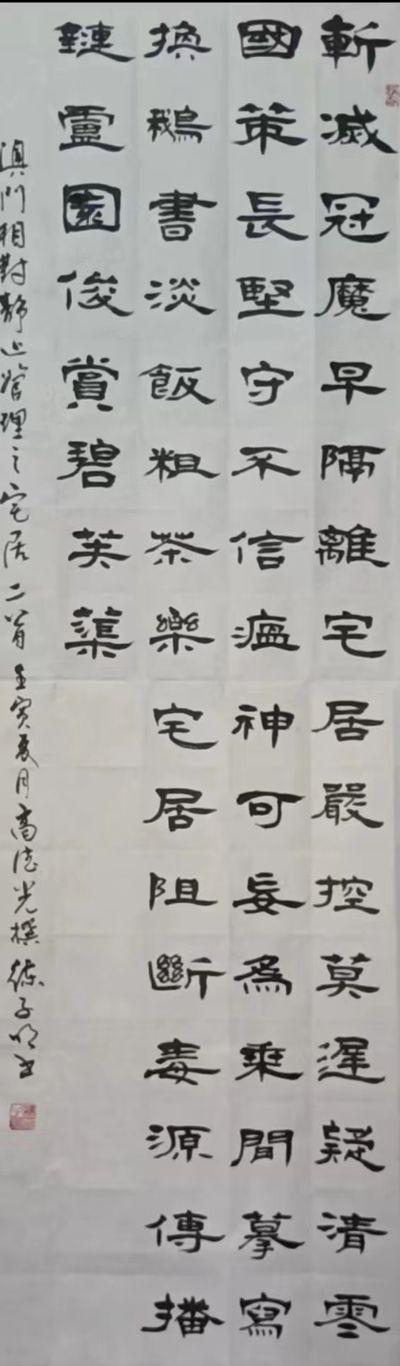 斬滅冠魔早隔離宅居嚴控莫遲疑清零
國策長堅守不信瘟神可妄為乘間摹寫
換鵝書淡飯粗茶樂宅居阻斷毒源傳播
鏈盧園俊賞碧芙蕖
澳門相對靜止管理之宅居二首壬寅夏月高德光撰練子明書